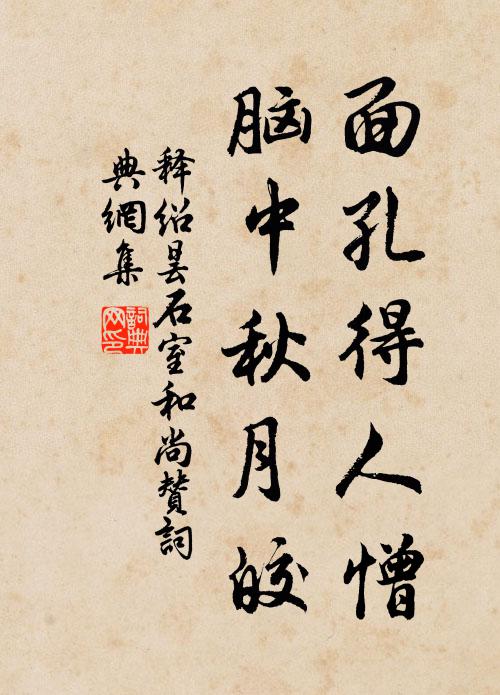 面孔得人憎
脑中秋月皎
释绍昙石室和尚赞词
典網集
詞典网印